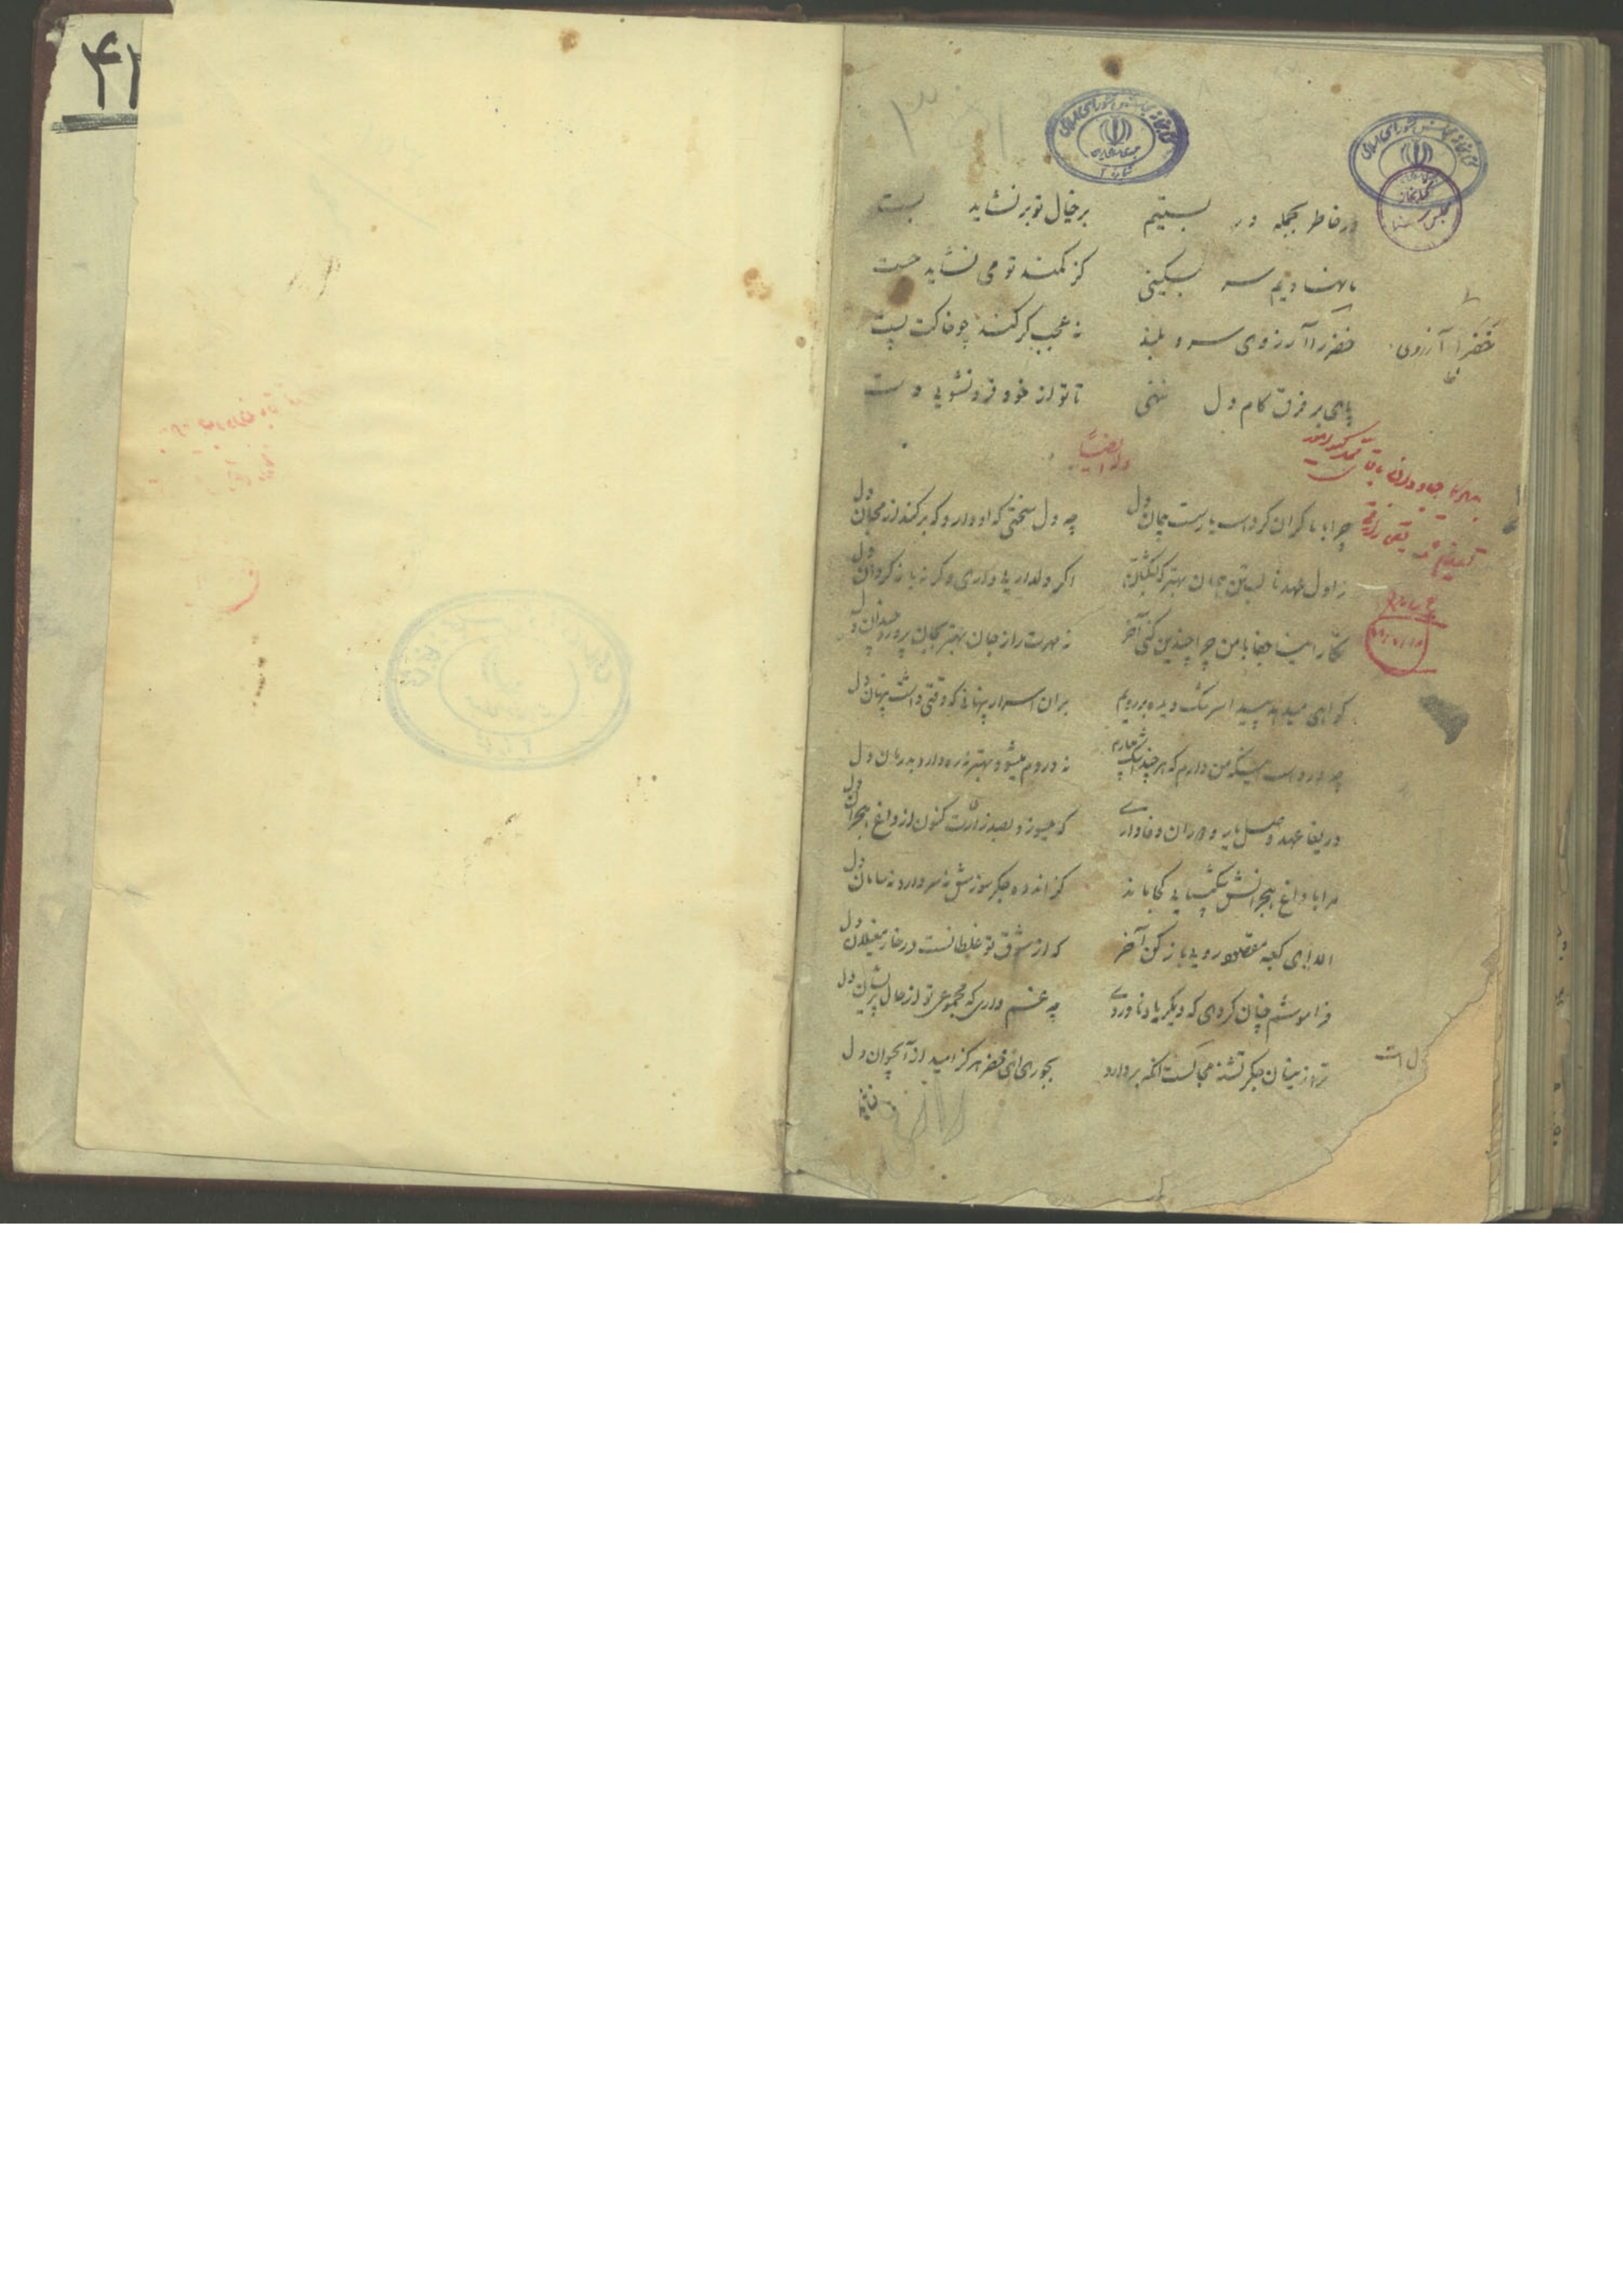 ۴۲
کتابخانه مجلس شورای اسلامی
کتابخانه مجلس شورای اسلامی
در خاطر بجمله در بستیم
بر خیال تو بر نشاید بست
ما نهادیم سر بسکینی
کز کمند تو می نشاید جست
خضر را آرزوی سرو بلند
نه عجب گر کند چو خاکت پست
خضر را آرزوی
پای بر فرق کام دل ننهی
تا تو از خود فرو نشویی دست
وله ایضا
چرا با ما گران کردست یار سست پیمان دل
چه دل سختی که او دارد که برکند از محبان دل
ز اول عهد نا بستن همان بهتر که بشکستن
اگر دلداریی داری وگرنه باز گردان دل
نگارا اینها جفا با من چرا چندین کنی آخر
نه مهرت را ز جان بهتر بجان پرورد چندان دل
گواهی میدهد پیدا سرشک دیده بر رویم
بران اسرار پنهانی که وقتی داشت پنهان دل
چه دردست اینکه من دارم که هر چندانکه
نه دردم میشود بهتر نه ره دارد بدرمان دل
دریغا عهد وصل یار و دوران وفاداری
که میسوزد بصد زارت کنون از داغ هجران دل
مرا با داغ هجرانش شکیبایی کجا ماند
کز اندوه جگر سوزش نه سر دارد نه سامان دل
الا ای کعبه مقصود رویی باز کن آخر
که از شوق تو غلطانست در خار مغیلان دل
فراموشم چنان کردی که دیگر یاد ناوردی
چه غم داری که مجموعی تو از حال پریشان دل
ترا زینسان جگر تشنه محالست آنکه بردارد
بجوری ای خضر هرگز امید از آبحیوان دل